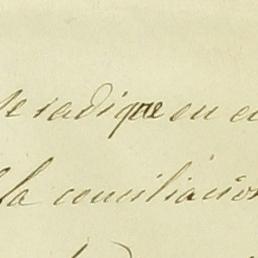 se radique en
la conciliacion